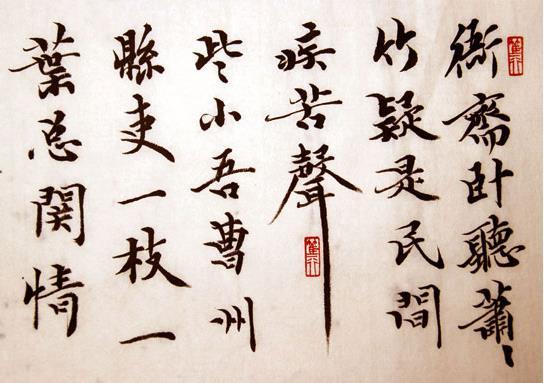 衙齋卧聽蕭〻
竹疑是民間
疾苦聲
些小吾曹州
縣吏一枝一
葉总関情